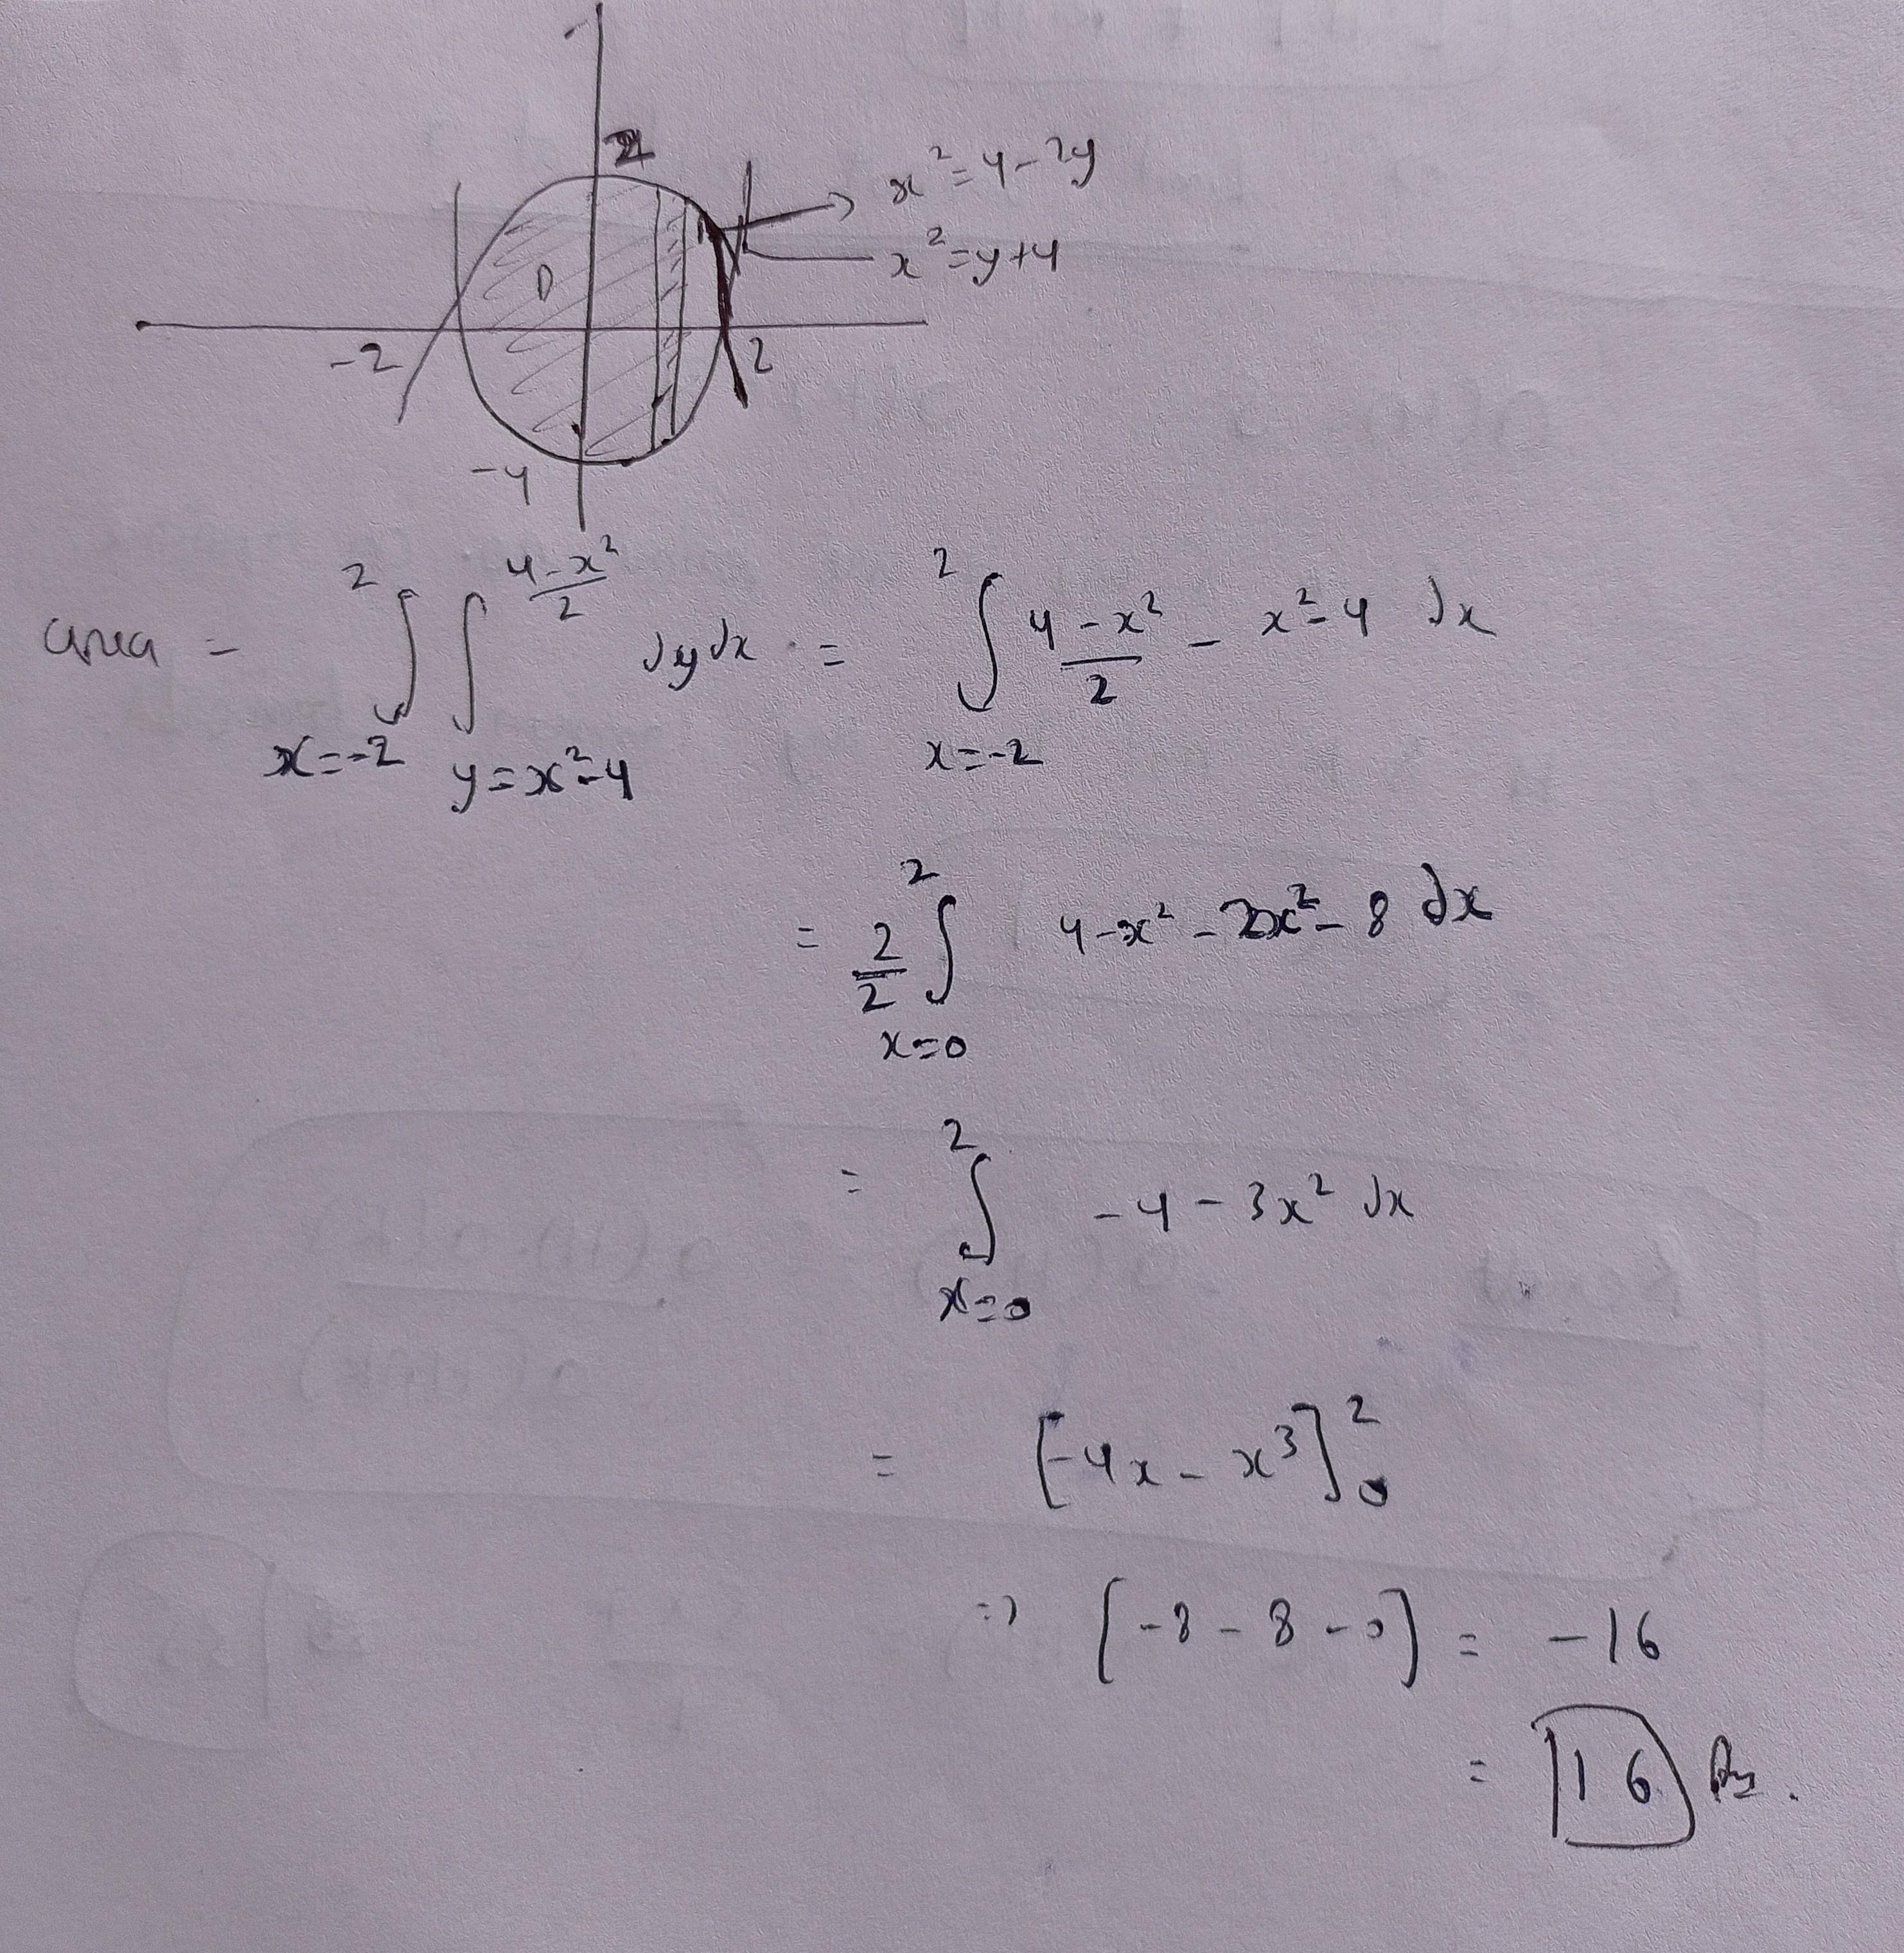 2
x² = 4 - 2y
x² = y + 4
D
-2
2
-4
area = ∫_{x=-2}^{2} ∫_{y=x²-4}^{(4-x²)/2} dy dx = ∫_{x=-2}^{2} (4-x²)/2 - x²-4 dx
= 2/2 ∫_{x=0}^{2} 4-x² - 2x² - 8 dx
= ∫_{x=0}^{2} -4 - 3x² dx
= [-4x - x³]_0^2
=> [-8 - 8 - 0] = -16
= 16 Ans.